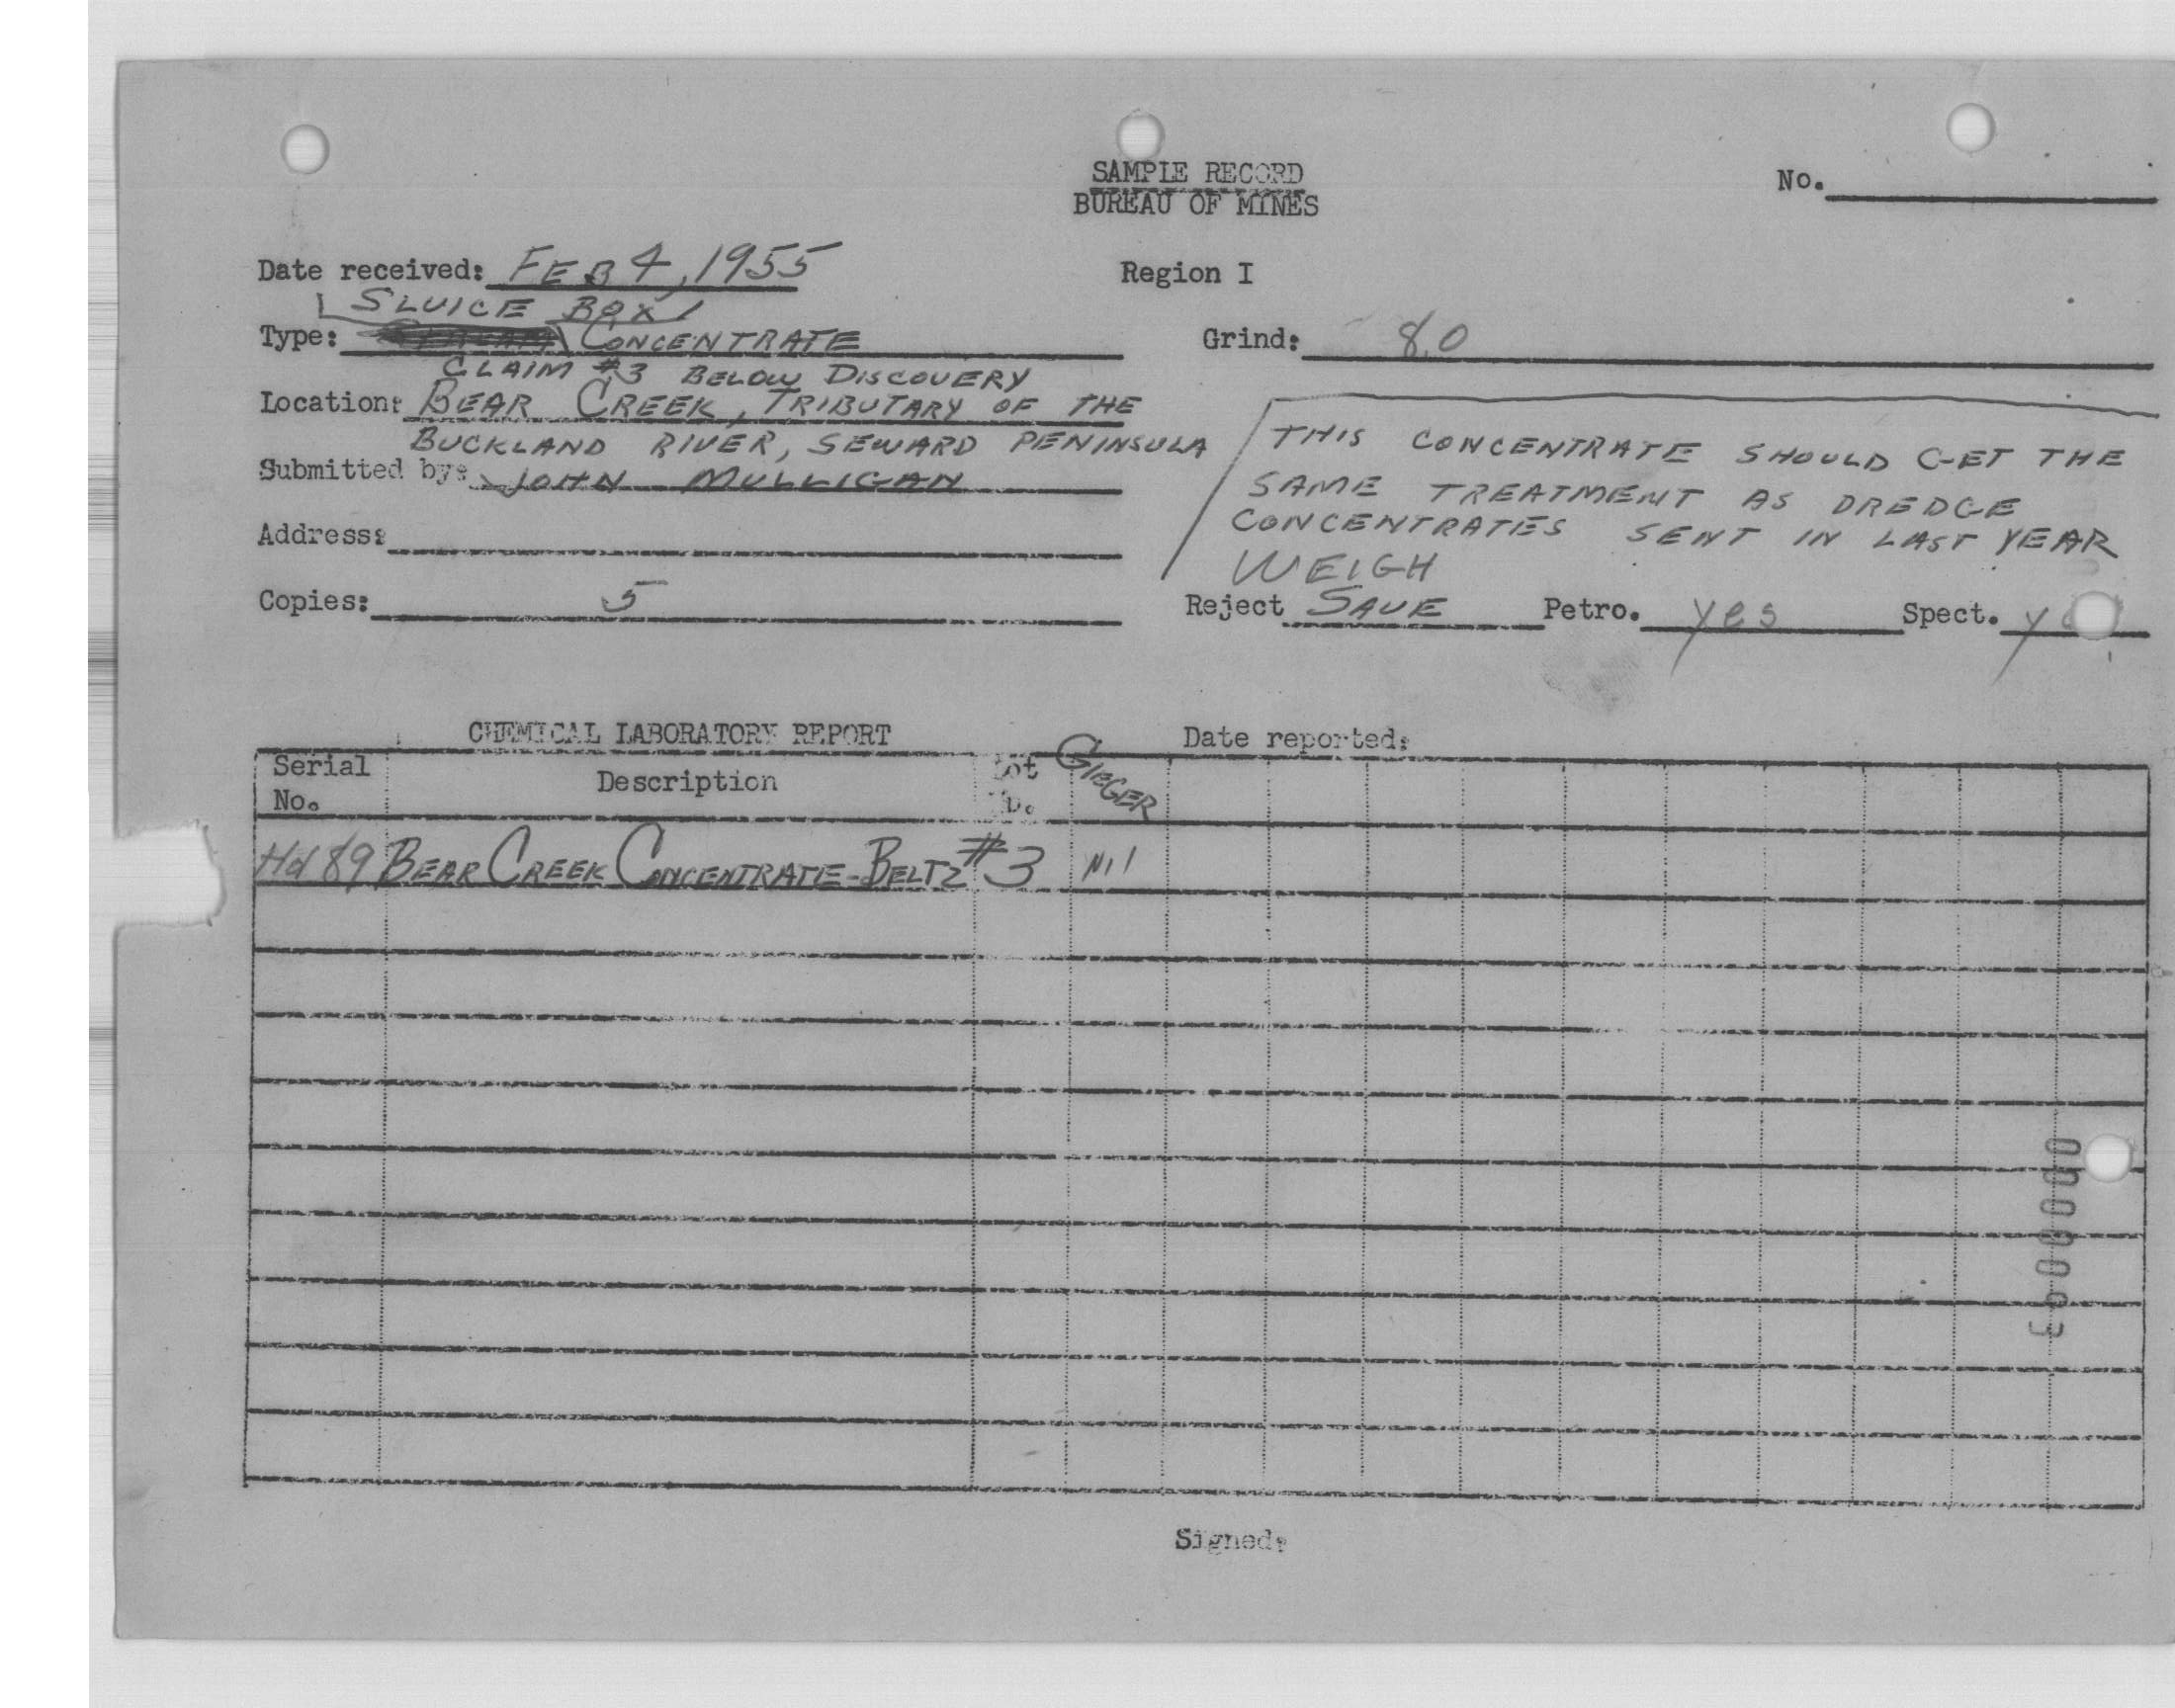 SAMPLE RECORD
BUREAU OF MINES
No.
Date received: FEB 4, 1955
Region I
SLUICE BOX
Type: CONCENTRATE
Grind: 80
CLAIM #3 BELOW DISCOVERY
Location: BEAR CREEK, TRIBUTARY OF THE
BUCKLAND RIVER, SEWARD PENINSULA
Submitted by: JOHN MULLIGAN
THIS CONCENTRATE SHOULD GET THE
SAME TREATMENT AS DREDGE
CONCENTRATES SENT IN LAST YEAR
Address:
WEIGH
Copies: 5
Reject SAVE Petro. yes Spect.
CHEMICAL LABORATORY REPORT
Date reported:
Serial No.
Description
GIEGER
Hd 89 BEAR CREEK CONCENTRATE-BELTZ #3 Nil
Signed: